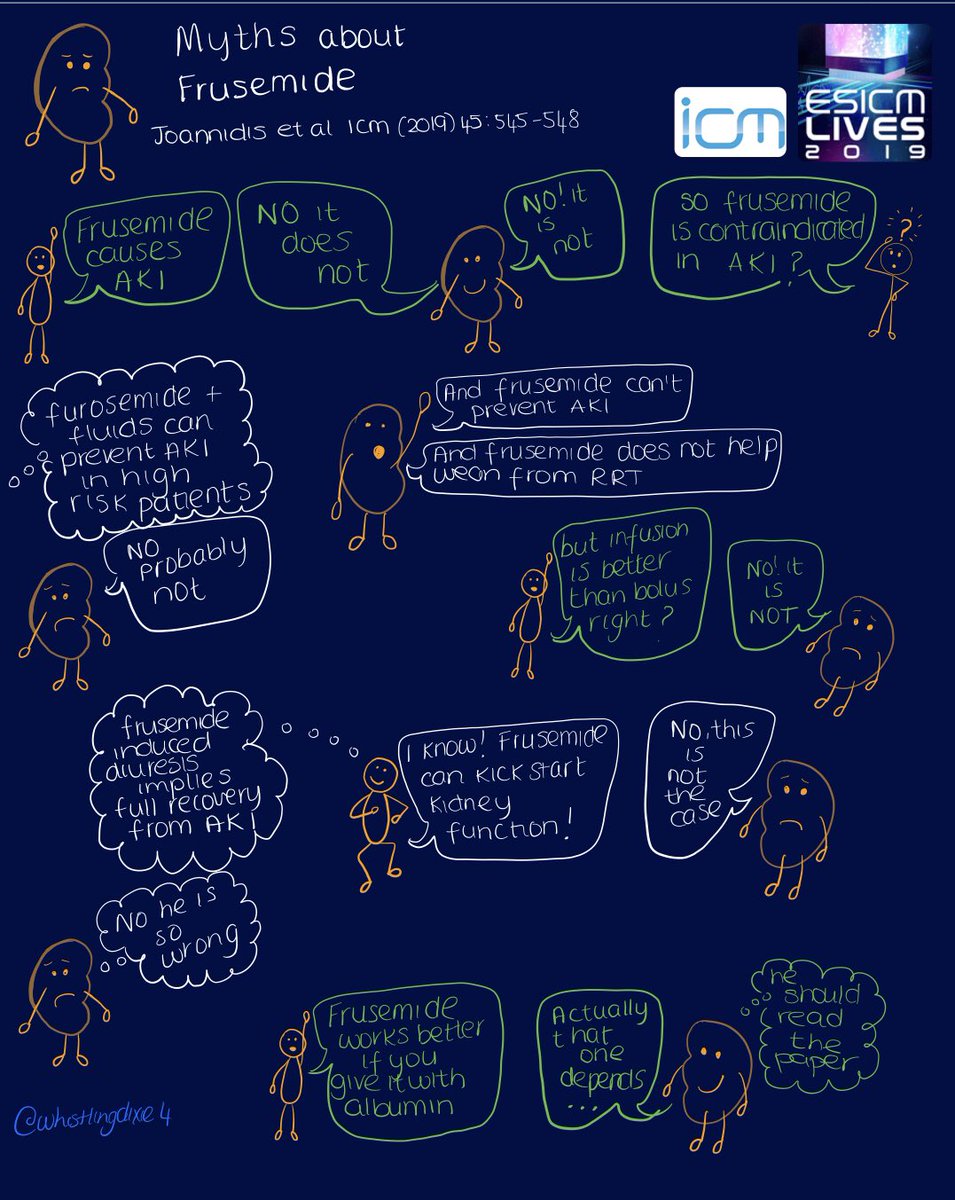 Myths about
Frusemide
Joannidis et al ICM (2019) 45:545-548
icm
ESICM
LIVES
2019
Frusemide
causes
AKI
NO it
does
not
NO! it
is
not
so frusemide
is contraindicated
in AKI?
?
furosemide +
fluids can
prevent AKI
in high
risk patients
NO
probably
not
And frusemide can't
prevent AKI
And frusemide does not help
wean from RRT
but infusion
is better
than bolus
right?
NO! it
is
NOT
frusemide
induced
diuresis
implies
full recovery
from AKI
I know! Frusemide
can kick start
kidney
function!
No, this
is
not
the
case
No he is
so
wrong
Frusemide
works better
if you
give it with
albumin
Actually
that
one
depends
.....
he
should
read
the
paper
@whistlingdixie4